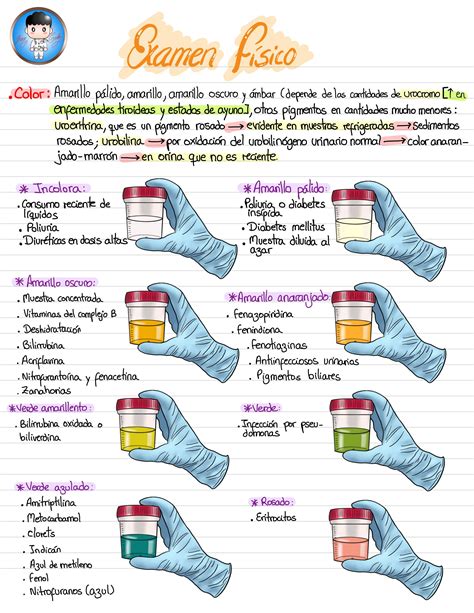 Examen físico
• Color: Amarillo pálido, amarillo, amarillo oscuro y ámbar (depende de las cantidades de urocromo [↑ en
enfermedades tiroideas y estados de ayuno], otros pigmentos en cantidades mucho menores:
uroeritrina, que es un pigmento rosado → evidente en muestras refrigeradas → Sedimentos
rosados; urobilina → por oxidación del urobilinógeno urinario normal → color anaran-
jado-marrón → en orina que no es reciente.
* Incolora:
• Consumo reciente de
líquidos
• Poliuria
• Diuréticas en dosis altas
* Amarillo pálido:
• Poliuria o diabetes
insípida
• Diabetes mellitus
• Muestra diluida al
azar
* Amarillo oscuro:
• Muestra concentrada
• Vitaminas del complejo B
• Deshidratación
• Bilirrubina
• Acriflavina
• Nitrofurantoína y fenacetina
• Zanahorias
* Amarillo anaranjado:
• Fenazopiridina
• Fenindiona
• Fenotiazinas
• Antiinfecciosos urinarios
• Pigmentos biliares
* Verde amarillento:
• Bilirrubina oxidada o
biliverdina
* Verde:
• Infección por pseu-
domonas
* Verde azulado:
• Amitriptilina
• Metocarbamol
• Clorets
• Indicán
• Azul de metileno
• Fenol
• Nitrofuranos (azul)
* Rosado:
• Eritrocitos